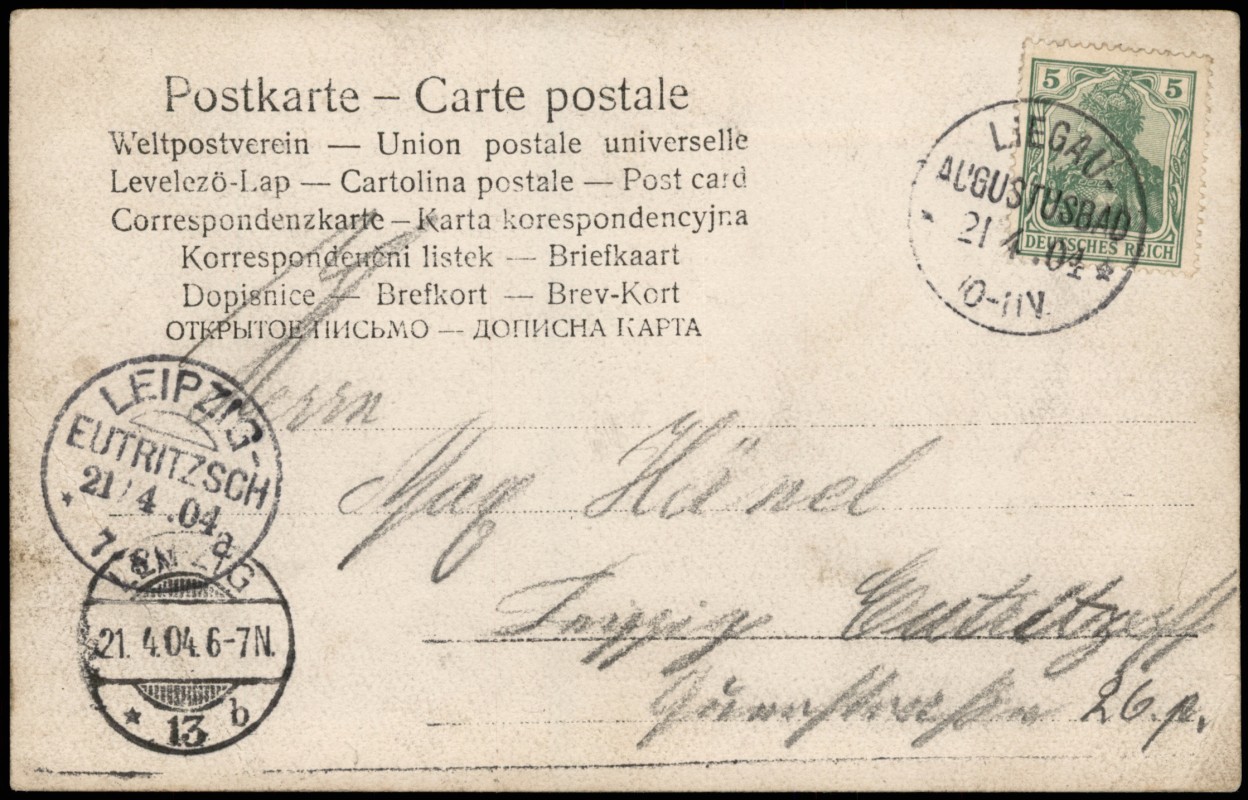 Postkarte – Carte postale
Weltpostverein — Union postale universelle
Levelezö-Lap — Cartolina postale — Post card
Correspondenzkarte – Karta korespondencyjna
Korrespondenční listek — Briefkaart
Dopisnice — Brefkort — Brev-Kort
ОТКРЫТОЕ ПИСЬМО — ДОПИСНА КАРТА
5 5
DEUTSCHES REICH
LIEGAU-
AUGUSTUSBAD
21 4 .04 *
10-11N.
LEIPZIG-
EUTRITZSCH
* 21/4 .04
7-8N a
LEIPZIG
21. 4.04. 6-7N.
* 13 b
Herrn
Max Hänel
Leipzig Eutritzsch
26. p.